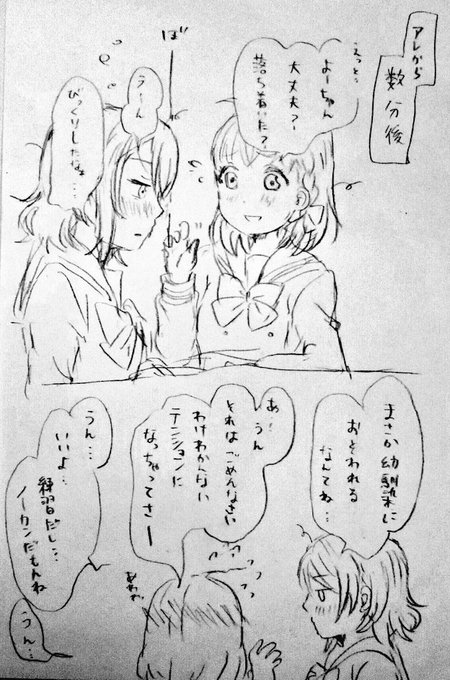 アレから
数分後
えっと…
よーちゃん
大丈夫？
落ち着いた？
ば
うーん
びっくりしたなぁ…
まさか幼馴染に
おそわれる
なんてね…
あ…うん
それはごめんなさい
わけわからない
テンションに
なっちゃってさー
あわわ
うん…
いいよ…
練習だし…
ノーカンだもんね
うん…